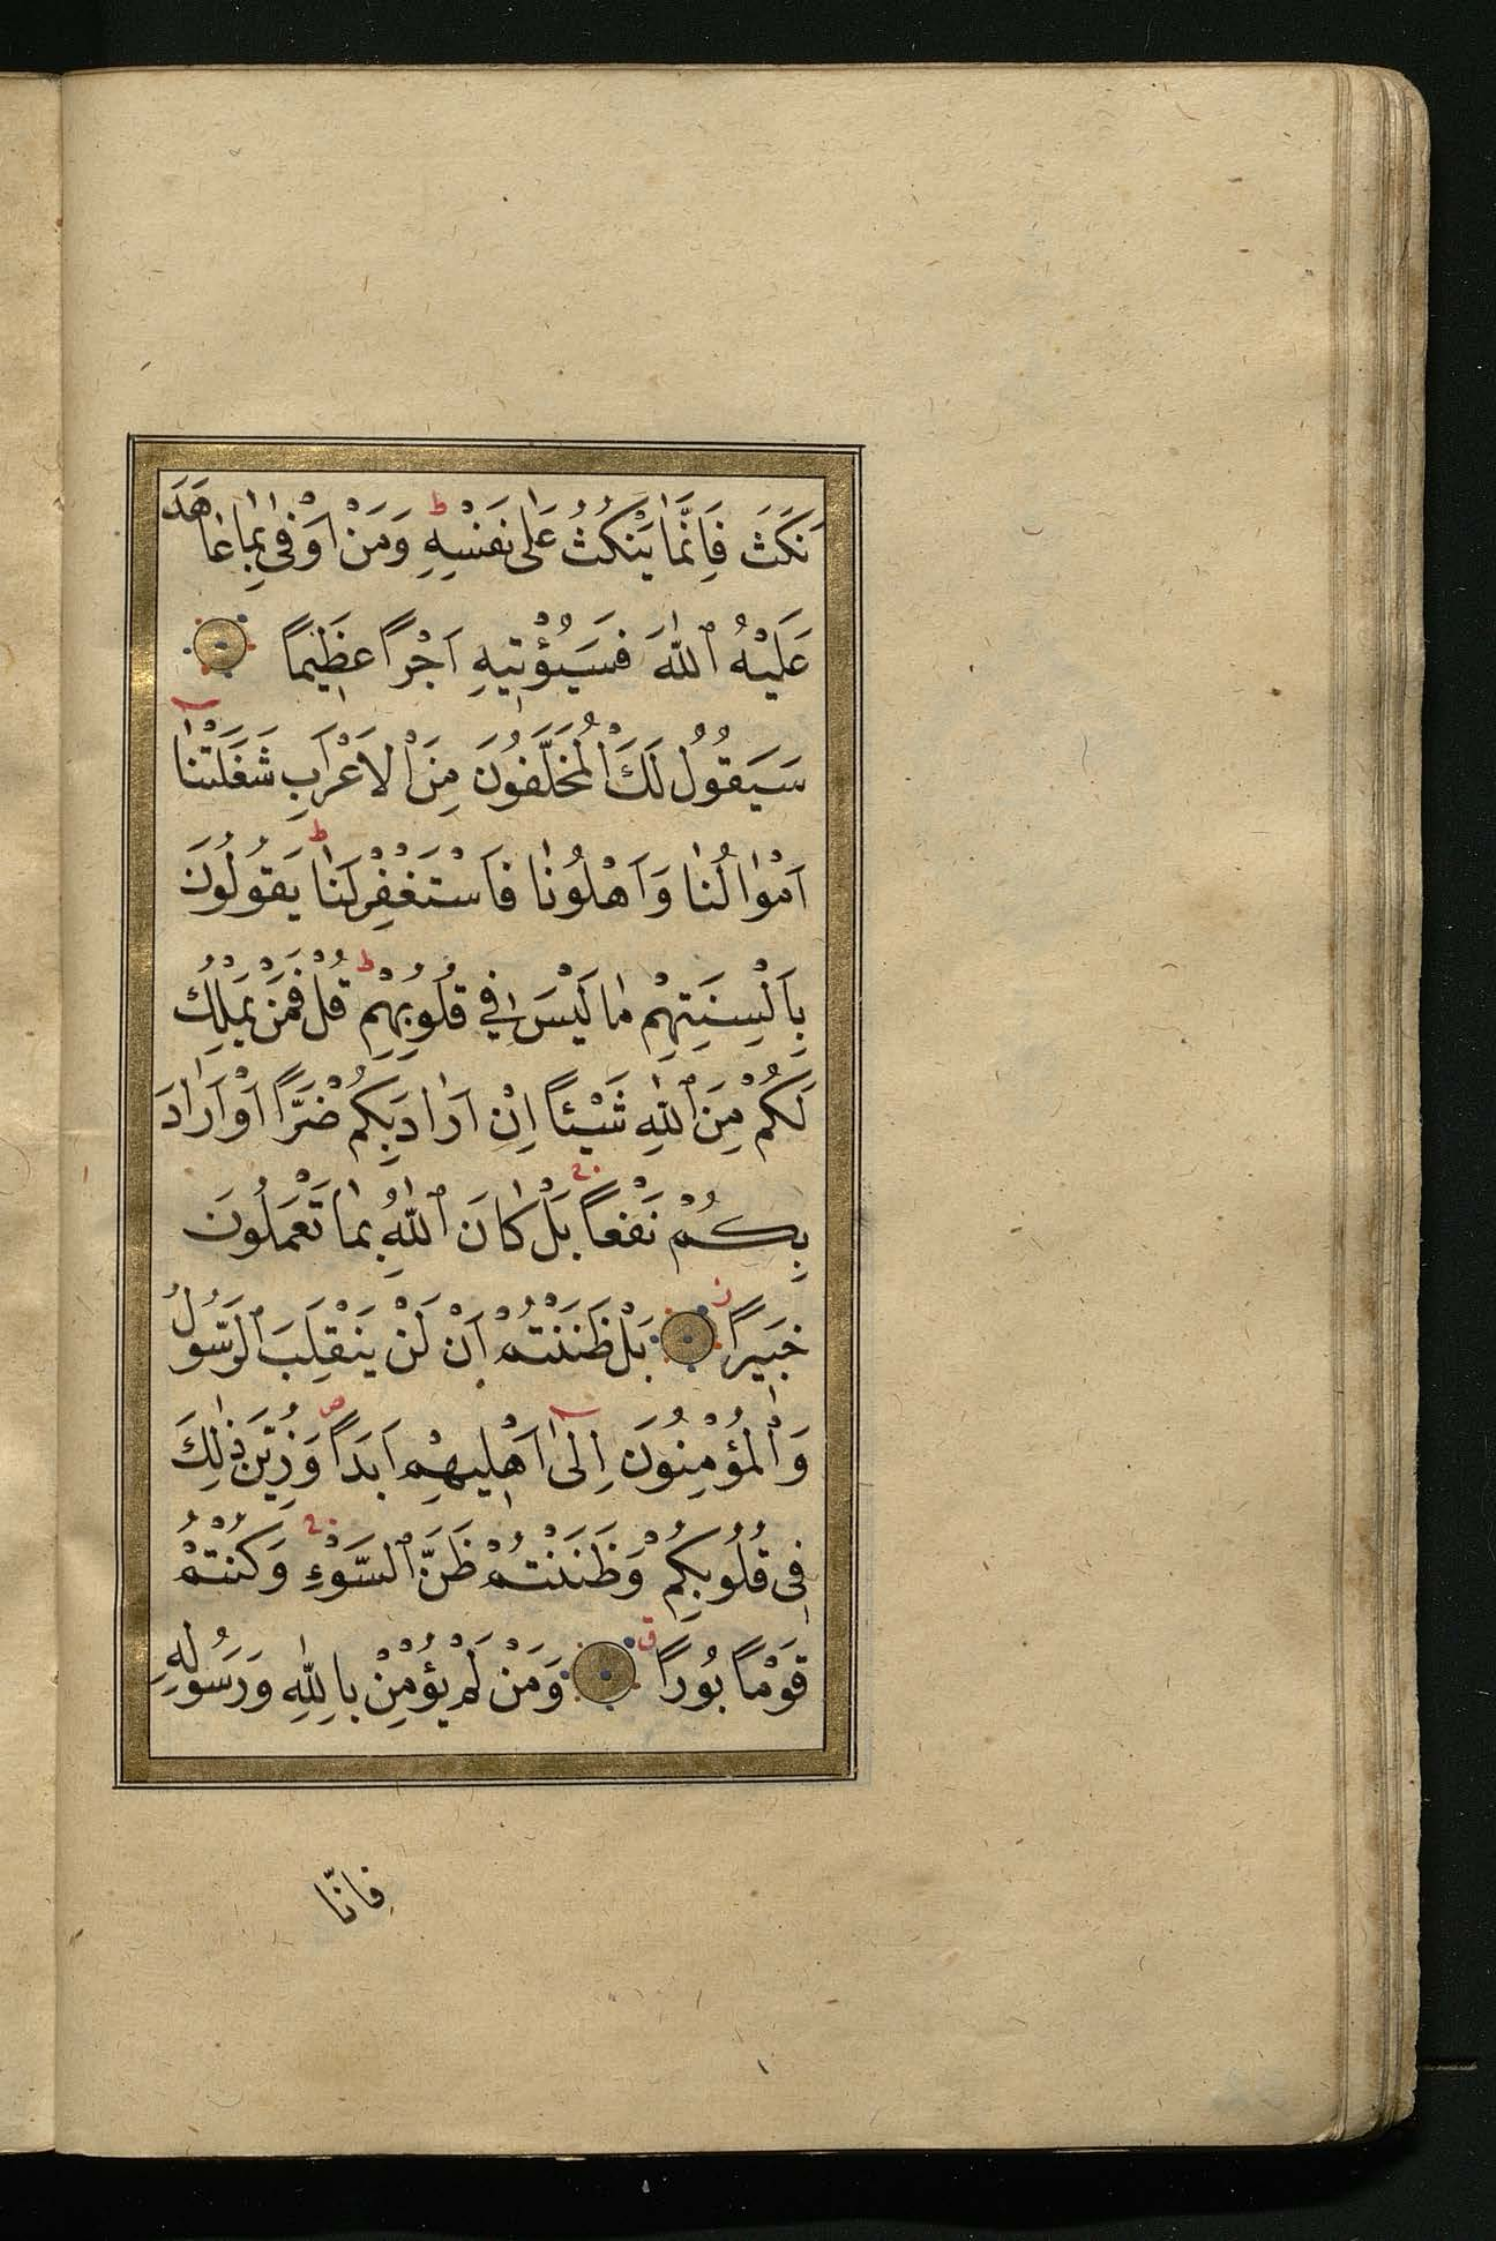 نَكَثَ فَاِنَّمَا يَنْكُثُ عَلٰى نَفْسِهِ ط وَمَنْ اَوْفٰى بِمَا عَاهَدَ
عَلَيْهُ اللّٰهَ فَسَيُؤْتِيهِ اَجْرًا عَظِيمًا
سَيَقُولُ لَكَ الْمُخَلَّفُونَ مِنَ الْاَعْرَابِ شَغَلَتْنَا
اَمْوَالُنَا وَاَهْلُونَا فَاسْتَغْفِرْ لَنَا ط يَقُولُونَ
بِاَلْسِنَتِهِمْ مَا لَيْسَ فِي قُلُوبِهِمْ ط قُلْ فَمَنْ يَمْلِكُ
لَكُمْ مِنَ اللّٰهِ شَيْئًا اِنْ اَرَادَ بِكُمْ ضَرًّا اَوْ اَرَادَ
بِكُمْ نَفْعًا ج بَلْ كَانَ اللّٰهُ بِمَا تَعْمَلُونَ
خَبِيرًا ز بَلْ ظَنَنْتُمْ اَنْ لَنْ يَنْقَلِبَ الرَّسُولُ
وَالْمُؤْمِنُونَ اِلٰى اَهْلِيهِمْ اَبَدًا ص وَزُيِّنَ ذٰلِكَ
فِى قُلُوبِكُمْ وَظَنَنْتُمْ ظَنَّ السَّوْءِ ج وَكُنْتُمْ
قَوْمًا بُورًا ق وَمَنْ لَمْ يُؤْمِنْ بِاللّٰهِ وَرَسُولِهِ
فانّا